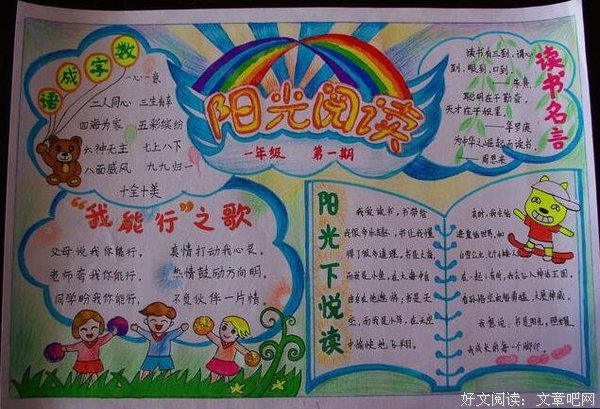 数字成语
一心一意
二人同心 三生有幸
四海为家 五彩缤纷
六神无主 七上八下
八面威风 九九归一
十全十美
阳光阅读
一年级 第一期
读书名言
读书有三到，谓心
到，眼到，口到。
——朱熹
聪明在于勤奋，
天才在于积累。
——华罗庚
为中华之崛起而读书。
——周恩来
“我能行”之歌
父母说我你能行，
老师夸我你能行，
同学盼我你能行，
真情打动我心灵。
热情鼓励方向明，
不负伙伴一片情。
阳光下悦读
我爱读书，书带给
我很多乐趣，书让我懂
得了很多道理。书是大海
而我是小鱼，在大海中自
由自在地遨游，书是天
空，而我是小鸟，在天空
中愉快地飞翔。
有时，我会钻
进童话世界，和
白雪公主
在一起；有时，我会加入神话王国，
看孙悟空机智勇猛，大显神威。
我想说：书是阳光，照耀
我成长的每一个脚印。
好文阅读：文章吧网